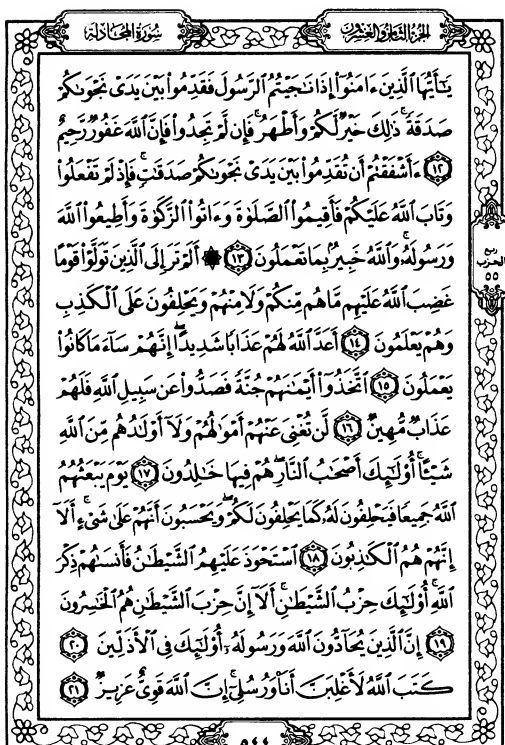 سورة المجادلة
الجزء الثامن والعشرون
يَـٰٓأَيُّهَا ٱلَّذِينَ ءَامَنُوٓا۟ إِذَا نَـٰجَيْتُمُ ٱلرَّسُولَ فَقَدِّمُوا۟ بَيْنَ يَدَىْ نَجْوَىٰكُمْ
صَدَقَةً ۚ ذَٰلِكَ خَيْرٌ لَّكُمْ وَأَطْهَرُ ۚ فَإِن لَّمْ تَجِدُوا۟ فَإِنَّ ٱللَّهَ غَفُورٌ رَّحِيمٌ
١٢ ءَأَشْفَقْتُمْ أَن تُقَدِّمُوا۟ بَيْنَ يَدَىْ نَجْوَىٰكُمْ صَدَقَـٰتٍ ۚ فَإِذْ لَمْ تَفْعَلُوا۟
وَتَابَ ٱللَّهُ عَلَيْكُمْ فَأَقِيمُوا۟ ٱلصَّلَوٰةَ وَءَاتُوا۟ ٱلزَّكَوٰةَ وَأَطِيعُوا۟ ٱللَّهَ
وَرَسُولَهُۥ ۚ وَٱللَّهُ خَبِيرٌۢ بِمَا تَعْمَلُونَ ١٣ ۞ أَلَمْ تَرَ إِلَى ٱلَّذِينَ تَوَلَّوْا۟ قَوْمًا
غَضِبَ ٱللَّهُ عَلَيْهِم مَّا هُم مِّنكُمْ وَلَا مِنْهُمْ وَيَحْلِفُونَ عَلَى ٱلْكَذِبِ
وَهُمْ يَعْلَمُونَ ١٤ أَعَدَّ ٱللَّهُ لَهُمْ عَذَابًا شَدِيدًا ۖ إِنَّهُمْ سَآءَ مَا كَانُوا۟
يَعْمَلُونَ ١٥ ٱتَّخَذُوٓا۟ أَيْمَـٰنَهُمْ جُنَّةً فَصَدُّوا۟ عَن سَبِيلِ ٱللَّهِ فَلَهُمْ
عَذَابٌ مُّهِينٌ ١٦ لَّن تُغْنِىَ عَنْهُمْ أَمْوَٰلُهُمْ وَلَآ أَوْلَـٰدُهُم مِّنَ ٱللَّهِ
شَيْـًٔا ۚ أُو۟لَـٰٓئِكَ أَصْحَـٰبُ ٱلنَّارِ ۖ هُمْ فِيهَا خَـٰلِدُونَ ١٧ يَوْمَ يَبْعَثُهُمُ
ٱللَّهُ جَمِيعًا فَيَحْلِفُونَ لَهُۥ كَمَا يَحْلِفُونَ لَكُمْ ۖ وَيَحْسَبُونَ أَنَّهُمْ عَلَىٰ شَىْءٍ ۚ أَلَآ
إِنَّهُمْ هُمُ ٱلْكَـٰذِبُونَ ١٨ ٱسْتَحْوَذَ عَلَيْهِمُ ٱلشَّيْطَـٰنُ فَأَنسَىٰهُمْ ذِكْرَ
ٱللَّهِ ۚ أُو۟لَـٰٓئِكَ حِزْبُ ٱلشَّيْطَـٰنِ ۚ أَلَآ إِنَّ حِزْبَ ٱلشَّيْطَـٰنِ هُمُ ٱلْخَـٰسِرُونَ
١٩ إِنَّ ٱلَّذِينَ يُحَآدُّونَ ٱللَّهَ وَرَسُولَهُۥٓ أُو۟لَـٰٓئِكَ فِى ٱلْأَذَلِّينَ ٢٠
كَتَبَ ٱللَّهُ لَأَغْلِبَنَّ أَنَا۠ وَرُسُلِىٓ ۚ إِنَّ ٱللَّهَ قَوِىٌّ عَزِيزٌ ٢١
ربع
الحزب
٥٥
٥٤٤